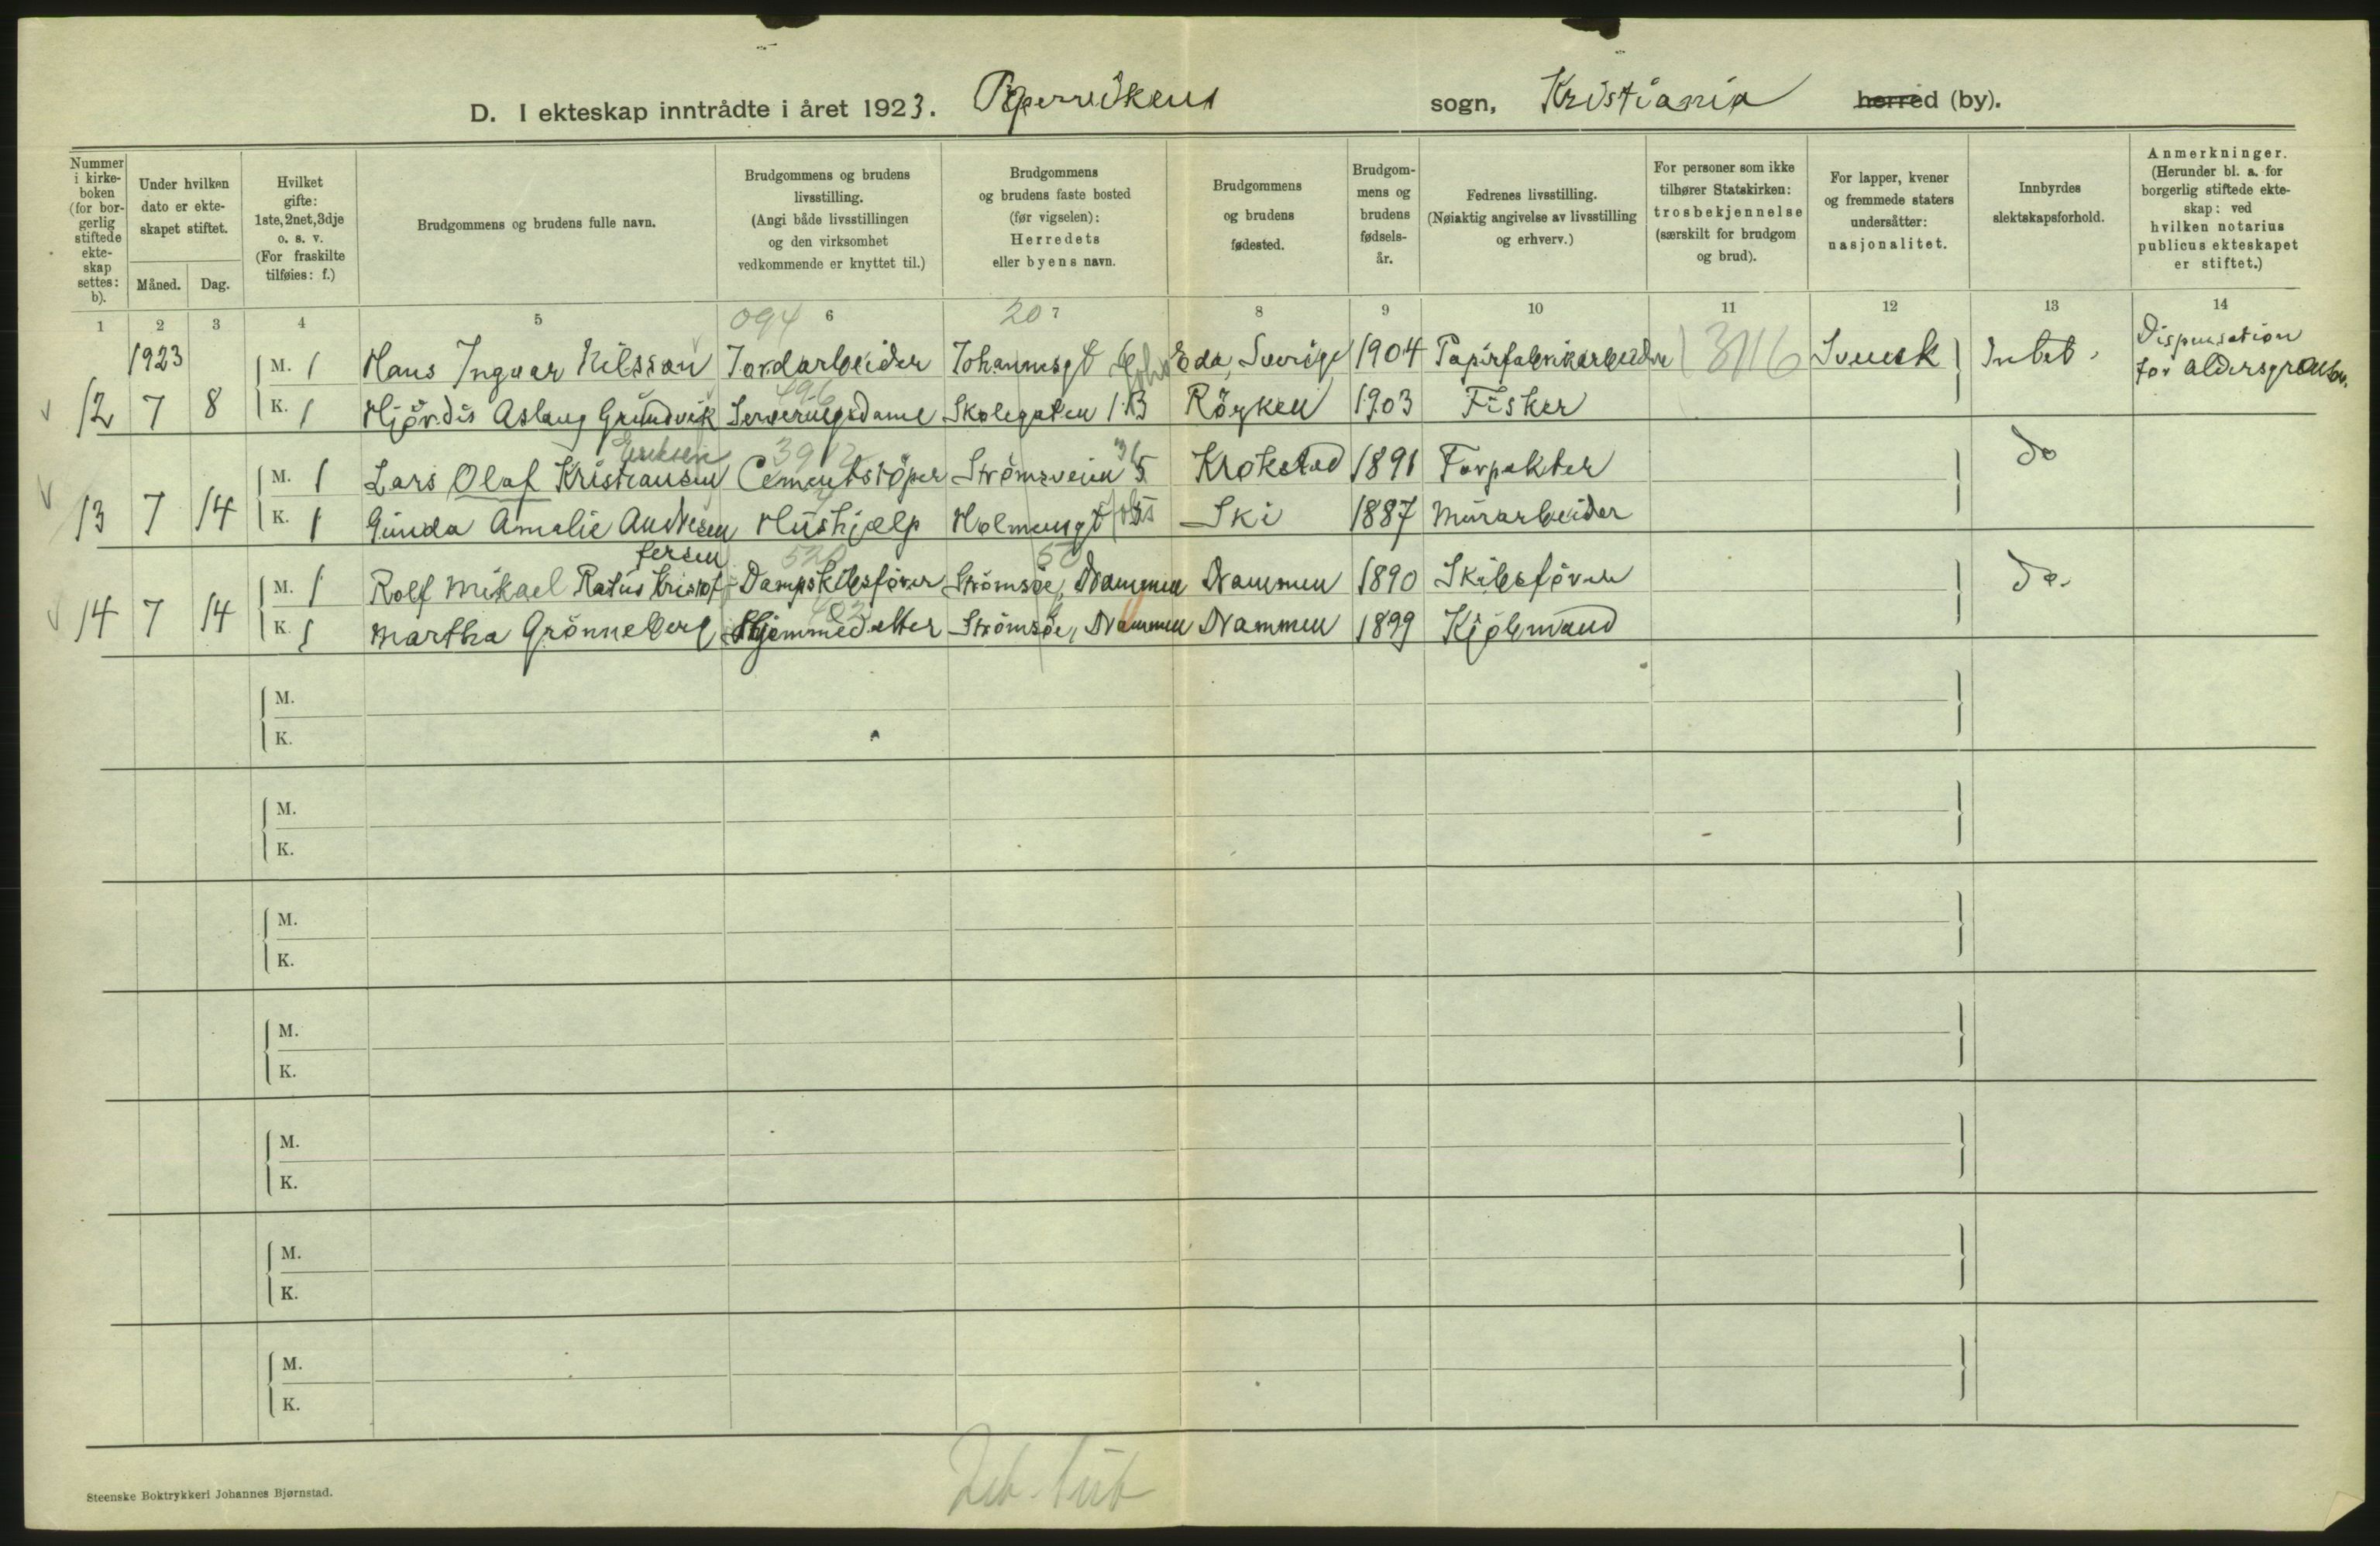 D. I ekteskap inntrådte i året 1923. Piperviken sogn, Kristiania herred (by).
Nummer i kirke-boken (for bor-gerlig stiftede ekte-skap settes: b).
Under hvilken dato er ekte-skapet stiftet.
Måned. Dag.
Hvilket gifte: 1ste, 2net, 3dje o. s. v. (For fraskilte tilføies: f.)
Brudgommens og brudens fulle navn.
Brudgommens og brudens livsstilling. (Angi både livsstillingen og den virksomhet vedkommende er knyttet til.)
Brudgommens og brudens faste bosted (før vigselen): Herredets eller byens navn.
Brudgommens og brudens fødested.
Brudgom-mens og brudens fødsels-år.
Fedrenes livsstilling. (Nøiaktig angivelse av livsstilling og erhverv.)
For personer som ikke tilhører Statskirken: trosbekjennelse (særskilt for brudgom og brud).
For lapper, kvener og fremmede staters undersåtter: nasjonalitet.
Innbyrdes slektskapsforhold.
Anmerkninger. (Herunder bl. a. for borgerlig stiftede ekte-skap: ved hvilken notarius publicus ekteskapet er stiftet.)
1 2 3 4 5 6 7 8 9 10 11 12 13 14
094 20
1923
M. 1 Hans Ingvar Nilsson Jordarbeider Johannesgt Eda, Sverige 1904 Papirfabrikarbeider 3116 Svensk Intet. Dispensation for aldersgrænsen.
496
12 7 8 K. 1 Hjördis Aslaug Grundvik Serveringsdame Skolegaten 1 B Röyken 1903 Fisker
Eriksen 3912 36
M. 1 Lars Olaf Kristiansen Cementstöper Strömsveien 5 Krokstad 1891 Forpakter do
13 7 14 K. 1 Gunda Amalie Andresen Hushjælp Holmensgt Ski 1887 Murarbeider
fersen 520 50
M. 1 Rolf Mikael Ratus Kristof- Dampskibsförer Strömsöe, Drammen Drammen 1890 Skibsförer do.
403
14 7 14 K. 1 Martha Grönneberg Hjemmedatter Strömsöe, Drammen Drammen 1899 Kjöbmand
M.
K.
M.
K.
M.
K.
M.
K.
M.
K.
M.
K.
M.
K.
Steenske Boktrykkeri Johannes Bjørnstad.